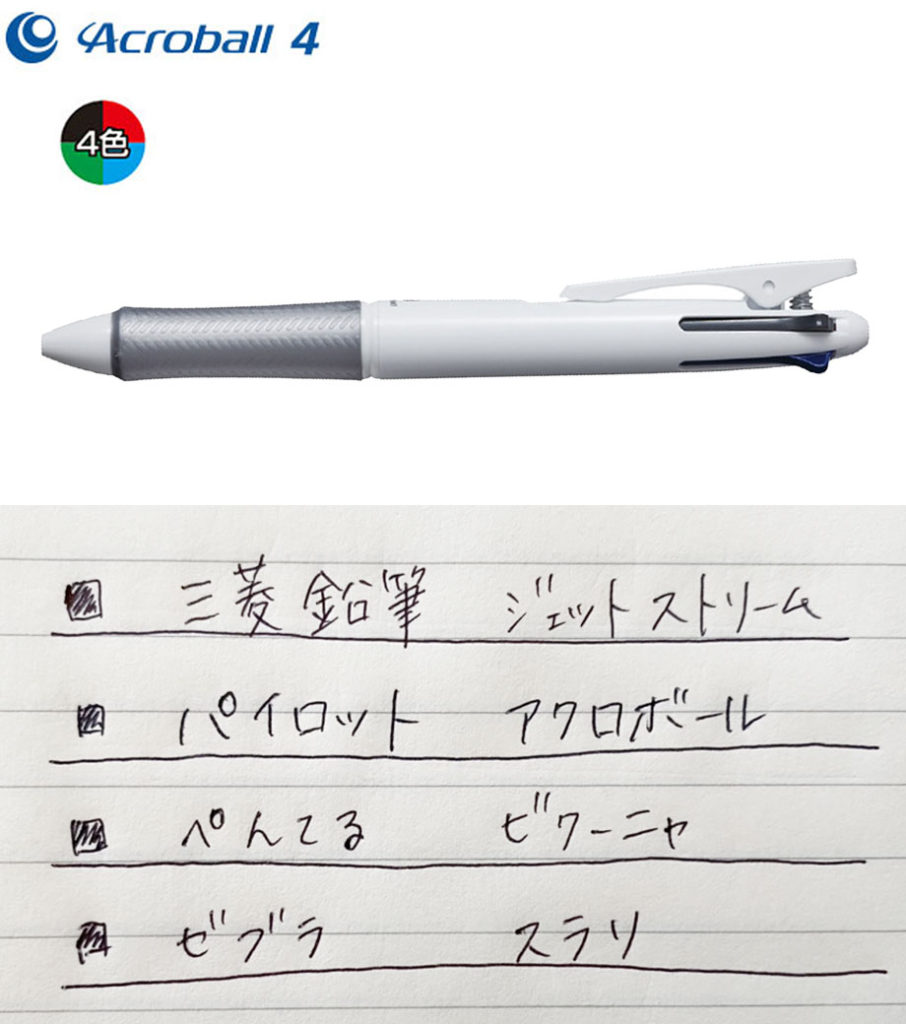 Acroball 4
4色
三菱鉛筆 ジェットストリーム
パイロット アクロボール
ぺんてる ビクーニャ
ゼブラ スラリ